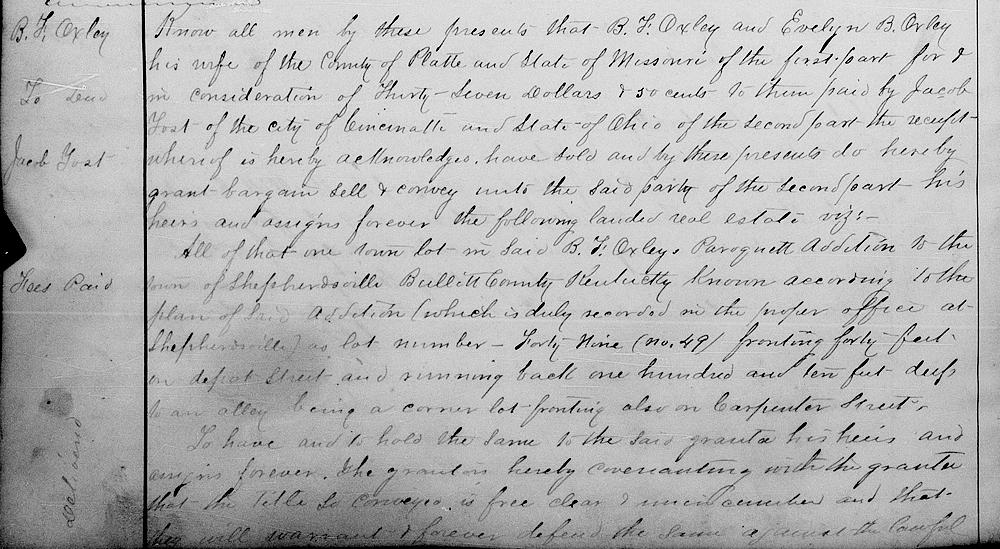 B. F. Oxley
To Deed
Jacob Yost
Fees Paid
Del'vered
Know all men by these presents that B. F. Oxley and Evelyn B. Oxley
his wife of the County of Platte and State of Missouri of the first part for &
in consideration of Thirty-Seven Dollars & 50 cents to them paid by Jacob
Yost of the city of Cincinatti and State of Ohio of the second part the receipt
wherof is hereby acknowledged, have sold and by these presents do hereby
grant bargain sell & convey unto the said party of the second part his
heirs and assigns forever the following landed real estate viz:-
All of that one town lot in said B. F. Oxleys Paroquett Addition to the
town of Shepherdsville Bullitt County Kentucky Known according to the
plan of said Addition (which is duly recorded in the proper office at
Shepherdsville) as lot number - Forty Nine (no. 49) fronting forty feet
on defeat Street and running back one hundred and ten feet deep
to an alley being a corner lot fronting also on Carpenter Street.
To have and to hold the same to the said grantee his heirs and
assigns forever. The grantors hereby covenanting with the grantee
that the title so conveyed is free clear & unincumber and that
they will warrant & forever defend the same against the lawful